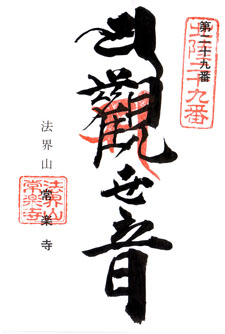 第二十九番
北陸二十九番
觀世音
法界山
常楽寺
法界山
常楽寺